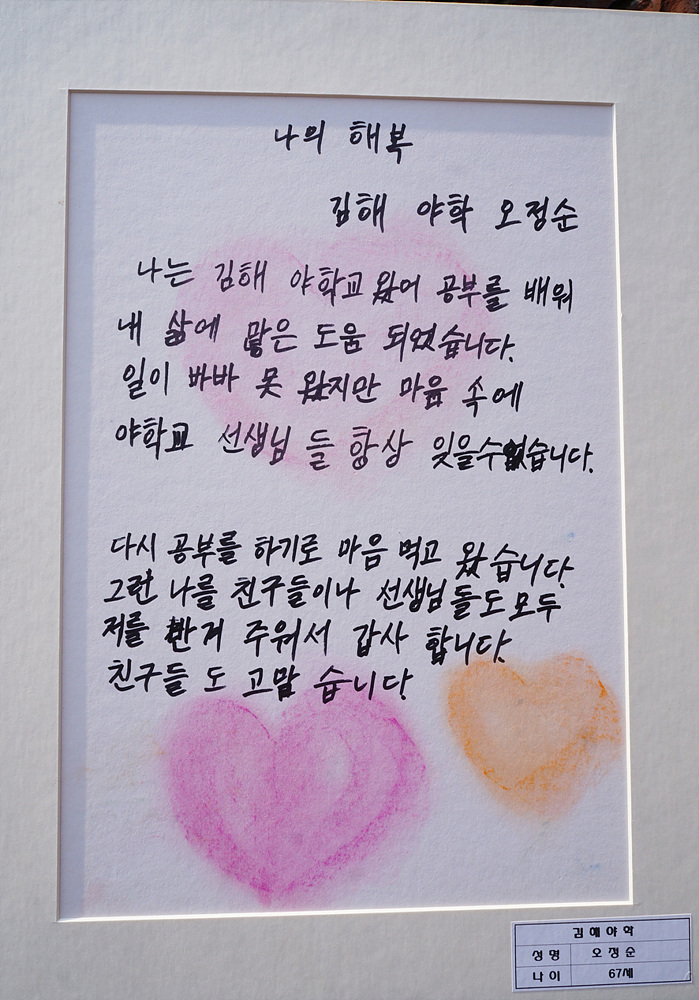 나의 해복
김해 야학 오정순
나는 김해 야학교 왔어 공부를 배워
내 삶에 많은 도움 되었습니다.
일이 바바 못 왔지만 마음 속에
야학교 선생님 들 항상 잊을수없습니다.
다시 공부를 하기로 마음 먹고 왔습니다.
그런 나를 친구들이나 선생님들도 모두
저를 반겨 주워서 갑사 합니다.
친구들 도 고맙 습니다.
김해야학
성명 오정순
나이 67세